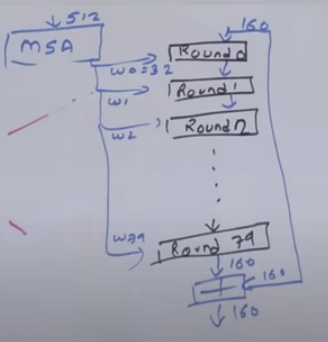 512
160
MSA
Round 0
W0=32
Round 1
W1
Round 2
W2
W79
Round 79
160
160
+
160